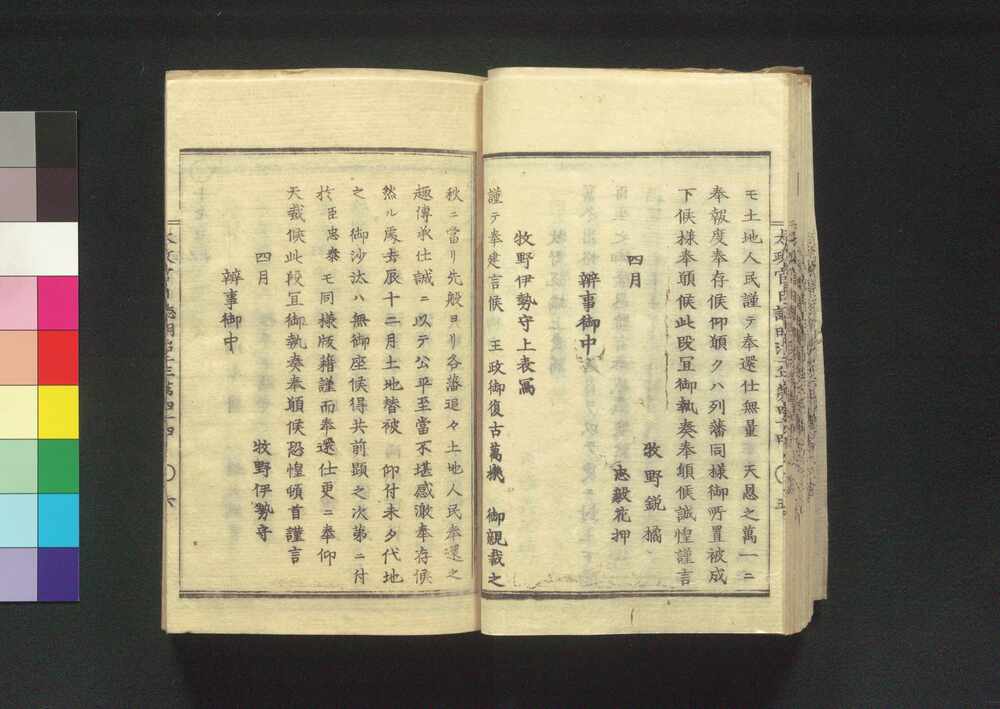 モ土地人民謹テ奉還仕無量ノ 天恩之萬一ニ
奉報度奉存候仰願クハ列藩同様御所置被成
下候様奉願候此段宜御執奏奉願候誠惶謹言
四月
牧野鋭橘
忠毅花押
辨事御中
牧野伊勢守上表寫
謹テ奉建言候 王政御復古萬機 御親裁之
秋ニ當リ先般ヨリ各藩追々土地人民奉還之
趣傳承仕誠ニ以テ公平至當不堪感激奉存候
然ル處去辰十二月土地替被 仰付未タ代地
之御沙汰ハ無御座候得共前顕之次第ニ付
於臣忠泰モ同様版籍謹而奉還仕更ニ奉仰
天裁候此段宜御執奏奉願候恐惶頓首謹言
四月
牧野伊勢守
辨事御中
六